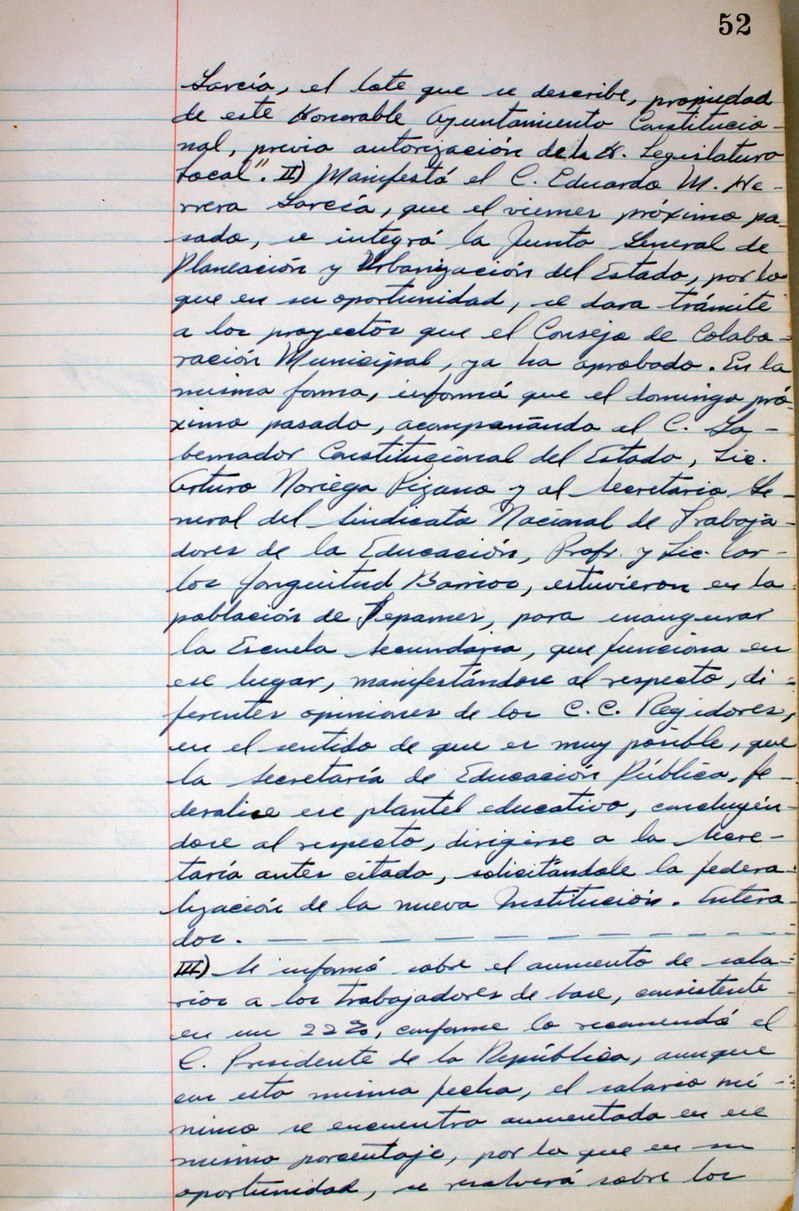 52
García, el lote que se describe, propiedad
de este Honorable Ayuntamiento Constitucio-
nal, previa autorización de la H. Legislatura
Local". II) Manifestó el C. Eduardo M. He-
rrera García, que el viernes próximo pa-
sado, se integró la Junta General de
Planeación y Urbanización del Estado, por lo
que en su oportunidad, se dara trámite
a los proyectos que el Consejo de Colabo-
ración Municipal, ya ha aprobado. En la
misma forma, informó que el domingo pró-
ximo pasado, acompañando al C. Go-
bernador Constitucional del Estado, Lic.
Arturo Noriega Pizano y al Secretario Ge-
neral del Sindicato Nacional de Trabaja-
dores de la Educación, Profr. y Lic. Car-
los Jonguitud Barrios, estuvieron en la
población de Tepames, para inaugurar
la Escuela Secundaria, que funciona en
ese lugar, manifestándose al respecto, di-
ferentes opiniones de los C.C. Regidores,
en el sentido de que es muy posible, que
la Secretaría de Educación Pública, fe-
deralice ese plantel educativo, concluyén-
dose al respecto, dirigirse a la Secre-
taría antes citada, solicitándole la federa-
lización de la nueva Institución. Entera-
dos. — — — — — — — — — — — —
III) Se informó sobre el aumento de sala-
rios a los trabajadores de base, consistente
en un 22%, conforme lo recomendó el
C. Presidente de la República, aunque
con esta misma fecha, el salario mí-
nimo se encuentra aumentado en ese
mismo porcentaje, por lo que en su
oportunidad, se resolverá sobre los